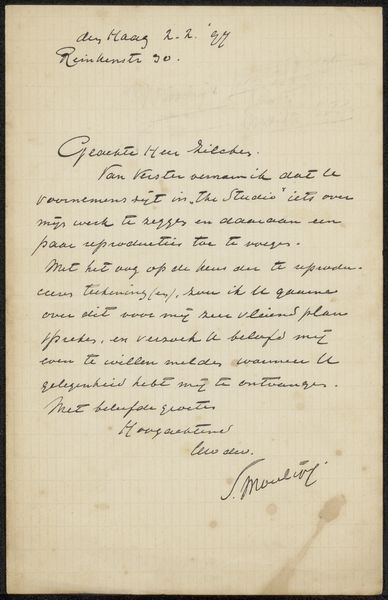 den Haag 2-2-'97
Reinkenstr 30.
Geachte Heer Zilcken.
Van Verster vernam ik dat U
voornemens zijt in „the Studio" iets over
mijn werk te zeggen en daaraan een
paar reproducties toe te voegen.
Met het oog op de keus der te reprodu-
ceeren teekening(en), zou ik U gaarne
over dit voor mij zeer vleiend plan
spreken, en verzoek U beleefd mij
even te willen melden wanneer U
gelegenheid hebt mij te ontvangen.
Met beleefde groeten
Hoogachtend
Uw dw.
S. Moulijn